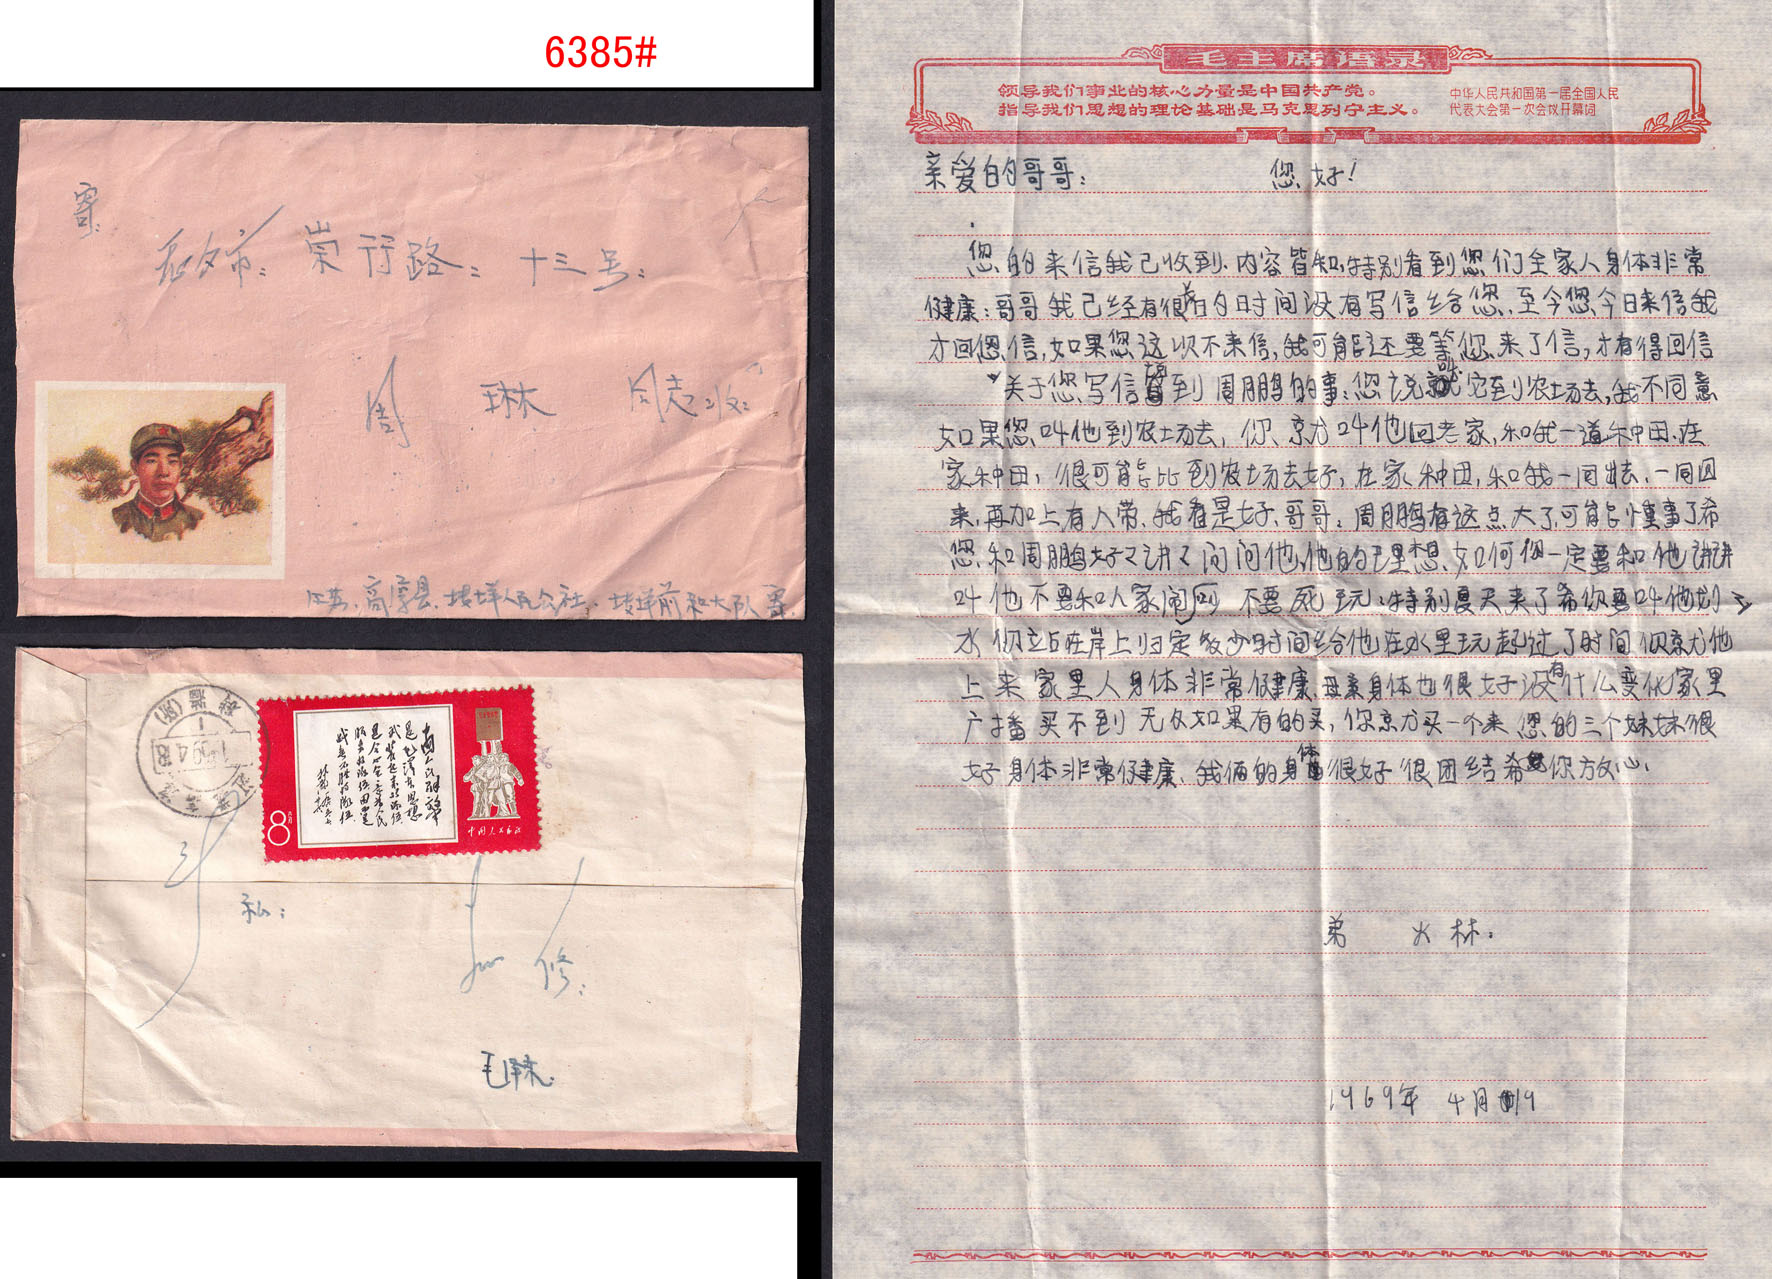 6385#
寄:
崇行路: 十三号:
周 琳 同志收
江苏高淳县 人民公社 前和大队寄
8
中国人民邮政
私:
修:
毛泽东
毛主席语录
领导我们事业的核心力量是中国共产党。
指导我们思想的理论基础是马克思列宁主义。
中华人民共和国第一届全国人民
代表大会第一次会议开幕词
亲爱的哥哥: 您好!
您的来信我已收到.内容皆知,特别看到您们全家人身体非常
健康:哥哥我已经有很长的时间没有写信给您.至今您今日来信我
才回您信,如果您这次不来信,我可能还要等您来了信,才有得回信
关于您写信提到周鹏的事:您说就叫它到农场去,我不同意
如果您叫他到农场去,你京尤叫他回老家,和我一道种田.在
家种田,很可能比到农场去好,在家种田,和我一同出去.一同回
来,再加上有人带.我看是好.哥哥:周鹏有这点大了,可能懂事了希
您和周鹏好々讲々问问他,他的理想如何您一定要和他讲讲
叫他不要和人家闹 不要死玩:特别夏天来了希你要叫他划
水你立占在岸上归定多少时间给他在水里玩起过了时间你京尤他
上来家里人身体非常健康.母亲身体也很好没有什么变化家里
广播买不到无 如果有的买,你京尤买一个来您的三个妹妹很
好身体非常健康.我俩的身体很好很团结希您你方文心.
弟 火林:
1969年 4月19